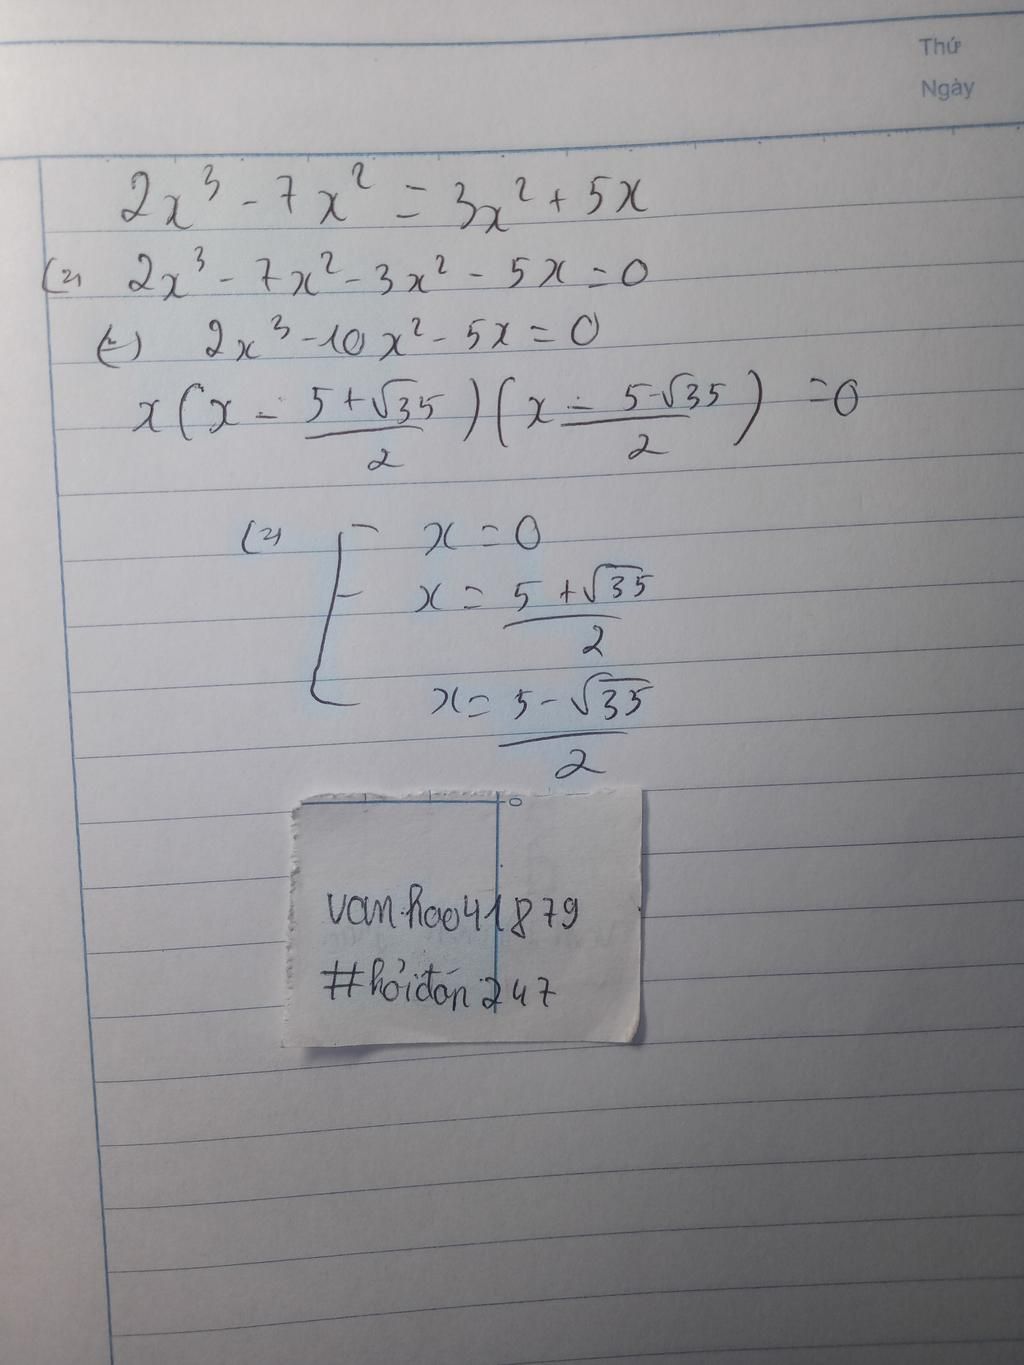 Thứ
Ngày
2x³ - 7x² = 3x² + 5x
(=) 2x³ - 7x² - 3x² - 5x = 0
(=) 2x³ - 10x² - 5x = 0
x(x - (5+√35)/2)(x - (5-√35)/2) = 0
(=) [ x = 0
x = (5+√35)/2
x = (5-√35)/2
vanhao41879
#hỏiđán247